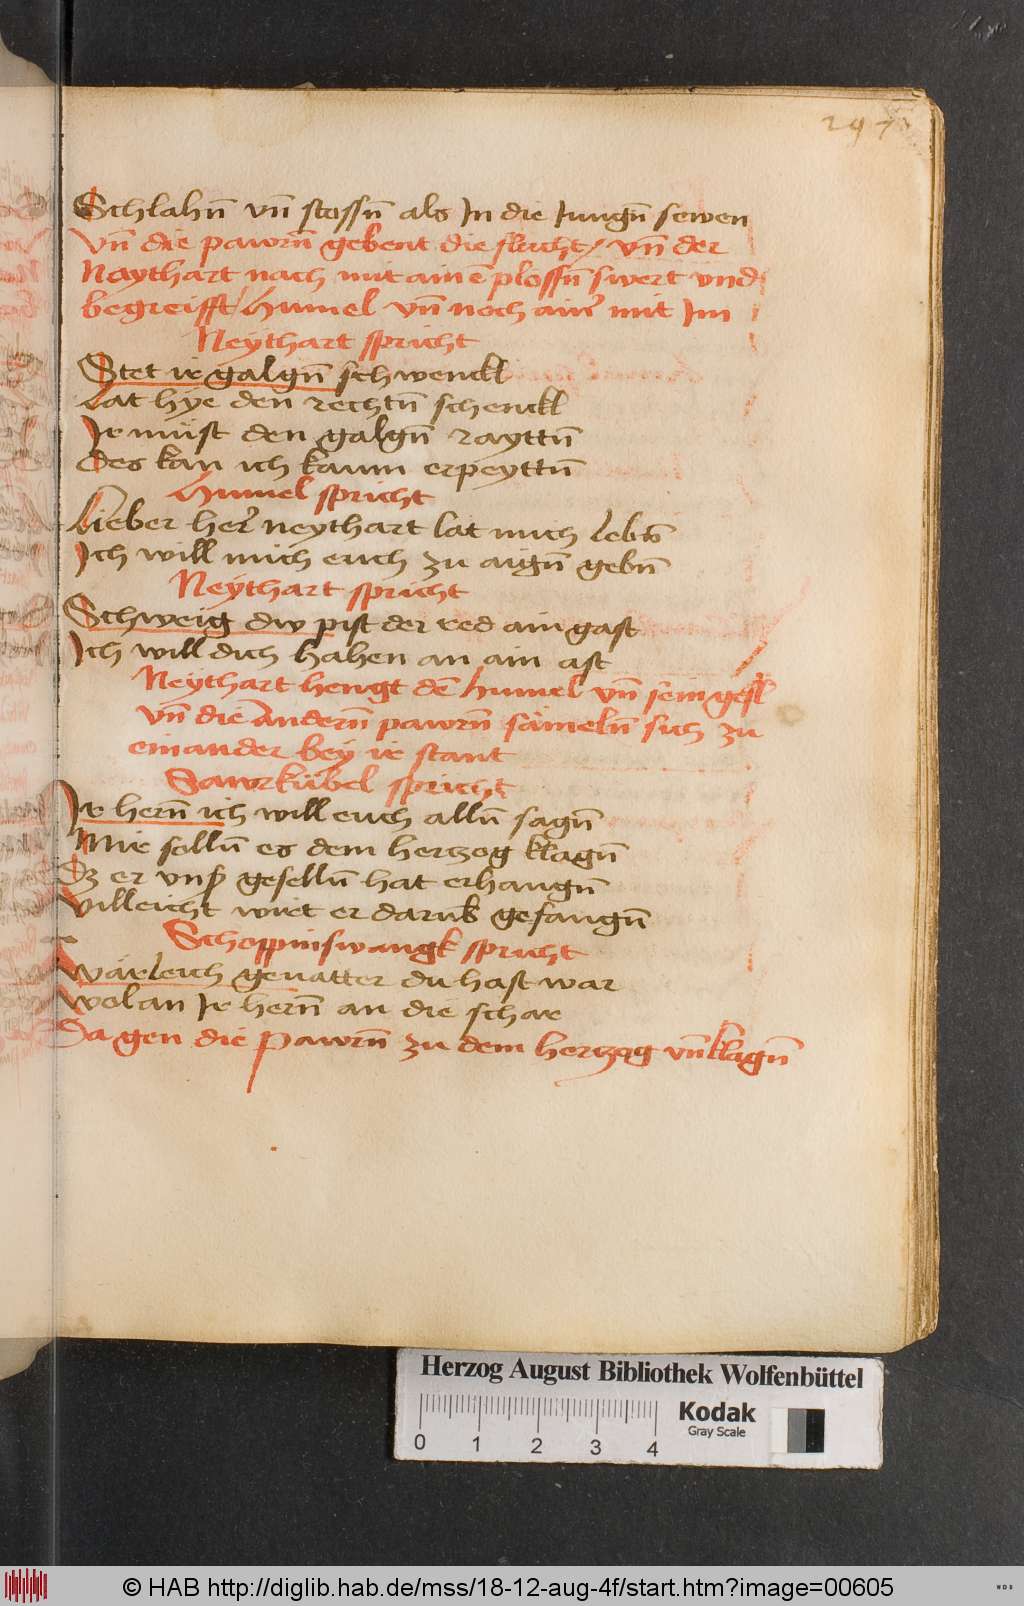 297
Schlahn̄ vn̄ stossn̄ als In die Jungn̄ sewen
Vn̄ die pawrn̄ gebent die flucht / vn̄ der
Naythart nach mit ainē plossn̄ swert vnd
begreifft humel vn̄ noch ainr̄ mit Im
Neythart spricht
Stet ir galgn̄ schwenckl
Lat hye den rechtn̄ schenckl
Ir müst den galgn̄ rayttn̄
Des kan ich kaum erpeyttn̄
Humel spricht
Lieber her̄ neythart lat mich lebn̄
Ich will mich euch zu aign̄ gebn̄
Neythart spricht
Schweig dw pist der red ain gast
Ich will dich hahen an ain ast
Neythart hengt dē humel vn̄ sein gesl
vn̄ die Andern̄ pawrn̄ sämeln̄ sich zu
einander bey ir stant
Sawrkübel spricht
Ir hern̄ ich will euch alln̄ sagn̄
Mir solln̄ es dem hertzog klagn̄
Dz er vnsꝰ geselln̄ hat erhangn̄
Villeicht wirt er darūb gefangn̄
Schoppinswangk spricht
Wärleich geuatter du hast war
Wolan Ir hern̄ an die schar
Da gen die Pawrn̄ zu dem hertzog vn̄ klagn̄
Herzog August Bibliothek Wolfenbüttel
0 1 2 3 4
Kodak
Gray Scale
© HAB http://diglib.hab.de/mss/18-12-aug-4f/start.htm?image=00605